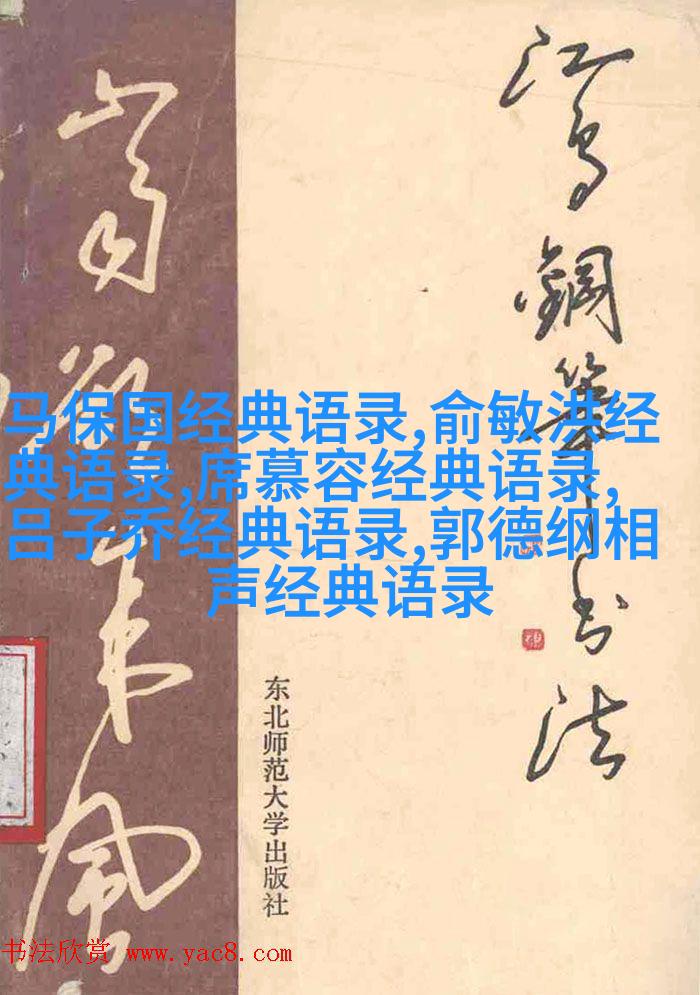 江鸟鋼筆书法
山雨欲来風
马保国经典语录,俞敏洪经
典语录,席慕容经典语录,
吕子乔经典语录,郭德纲相
声经典语录
东北师范大学出版社
书法欣赏 www.yac8.com